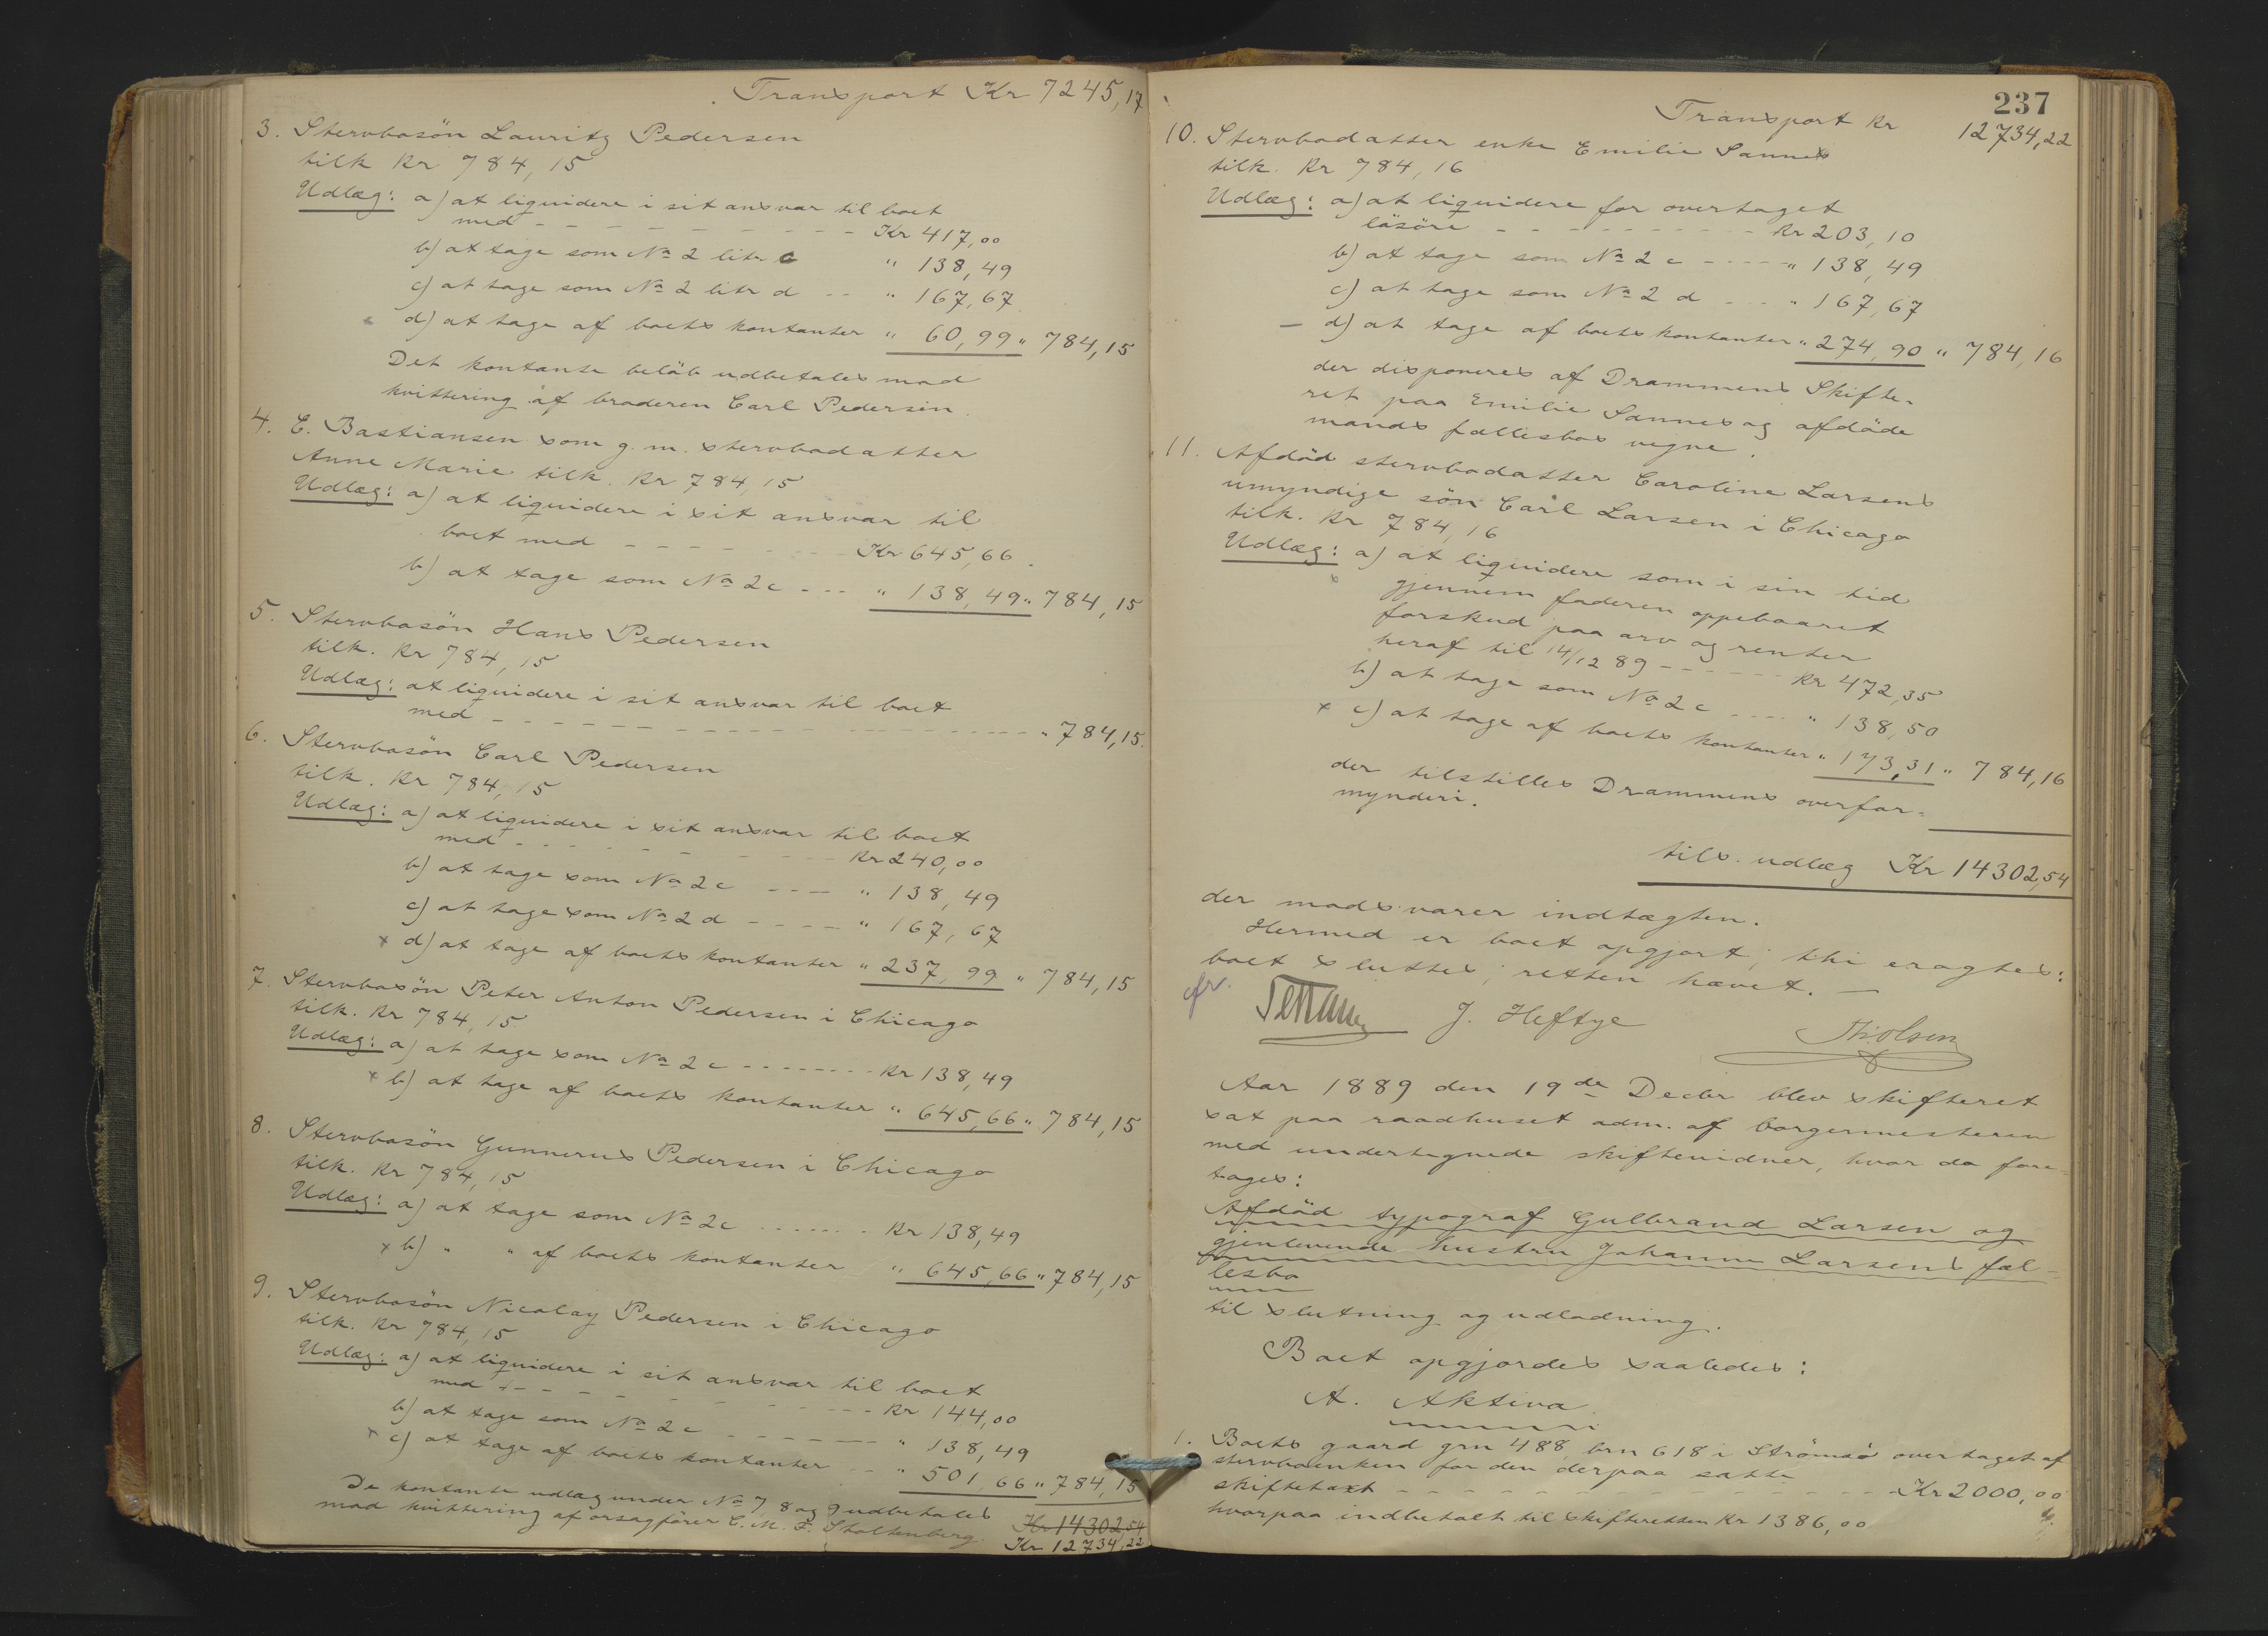 Transport Kr 7245,17
3. Stervbosön Lauritz Pedersen
tilk Kr 784,15
Udlæg: a) at liquidere i sit ansvar til boet
med - - - - - - - - - - Kr 417,00
b) at tage som No 2 litr c " 138,49
c) at tage som No 2 litr d - - " 167,67
d) at tage af boets kontanter " 60,99 " 784,15
Det kontante beløb udbetales mod
kvittering af broderen Carl Pedersen.
4. E. Bastiansen som g. m. stervbodatter
Anne Marie tilk. Kr 784,15
Udlæg: a) at liquidere i sit ansvar til
boet med - - - - - - - Kr 645,66.
b) at tage som No 2 c - - - " 138,49 " 784,15
5. Stervbosön Hans Pedersen
tilk. Kr 784,15
Udlæg: at liquidere i sit ansvar til boet
med - - - - - - - - - - - - - - - - " 784,15.
6. Stervbosön Carl Pedersen
tilk. Kr 784,15
Udlæg: a) at liquidere i sit ansvar til boet
med - - - - - - - - Kr 240,00
b) at tage som No 2 c - - - " 138,49
c) at tage som No 2 d - - - - " 167,67
x d) at tage af boets kontanter " 237,99 " 784,15
7. Stervbosön Peter Anton Pedersen i Chicago
tilk. Kr 784,15
Udlæg: a) at tage som No 2 c - - - - - - - - Kr 138,49
x b) at tage af boets kontanter " 645,66 " 784,15
8. Stervbosön Gunnerus Pedersen i Chicago
tilk. Kr 784,15
Udlæg: a) at tage som No 2 c - - - - - - - Kr 138,49
x b) " " af boets kontanter " 645,66 " 784,15
9. Stervbosön Nicolay Pedersen i Chicago
tilk. Kr 784,15
Udlæg: a) at liquidere i sit ansvar til boet
med - - - - - - - - - - Kr 144,00
b) at tage som No 2 c - - - - - - " 138,49
x c) at tage af boets kontanter - - " 501,66 " 784,15
De kontante udlæg under No 7, 8 og 9 udbetales
Kr 14302,54
mod kvittering af orsagfører C. M. F. Stoltenberg.
Kr 12734,22
237
Transport Kr 12734,22
10. Stervbodatter enke Emilie Sannes
tilk. Kr 784,16
Udlæg: a) at liquidere for overtaget
läsöre - - - - - - - - - - - Kr 203,10
b) at tage som No 2 c - - - - - " 138,49
c) at tage som No 2 d - - - " 167,67
- d) at tage af boets kontanter " 274,90 " 784,16
der disponeres af Drammens Skifte-
ret paa Emilie Sannes og afdöde
mands fællesbos vegne.
11. Afdöd stervbodatter Caroline Larsens
umyndige sön Carl Larsen i Chicago
tilk. Kr 784,16
Udlæg: a) at liquidere som i sin tid
x gjennem faderen oppebaaret
forskud paa arv og renter
heraf til 14/12 89 - - - - - - Kr 472,35
b) at tage som No 2 c - - - - " 138,50
x c) at tage af boets kontanter " 173,31 " 784,16
der tilstilles Drammens overfor-
mynderi.
tils. udlæg Kr 14302,54
der modsvarer indtægten.
Hermed er boet opgjort; thi eragtes:
boet sluttes; retten hævet. —
cfr.
J. Heftye
Th. Olsen
Aar 1889 den 19de Decbr blev skifteret
sat paa raadhuset adm. af borgermesteren
med undertegnede skiftevidner, hvor da fore-
toges:
Afdöd typograf Gulbrand Larsen og
gjenlevende hustru Johanne Larsens fæl-
lesbo
til slutning og udlodning.
Boet opgjordes saaledes:
A. Aktiva
1. Boets gaard grn 488, brn 618 i Strömsö overtaget af
stervboenken for den derpaa satte
skiftetaxt - - - - - - - - - - - - - - - - Kr 2000,00
hvorpaa indbetalt til skifteretten Kr 1386,00